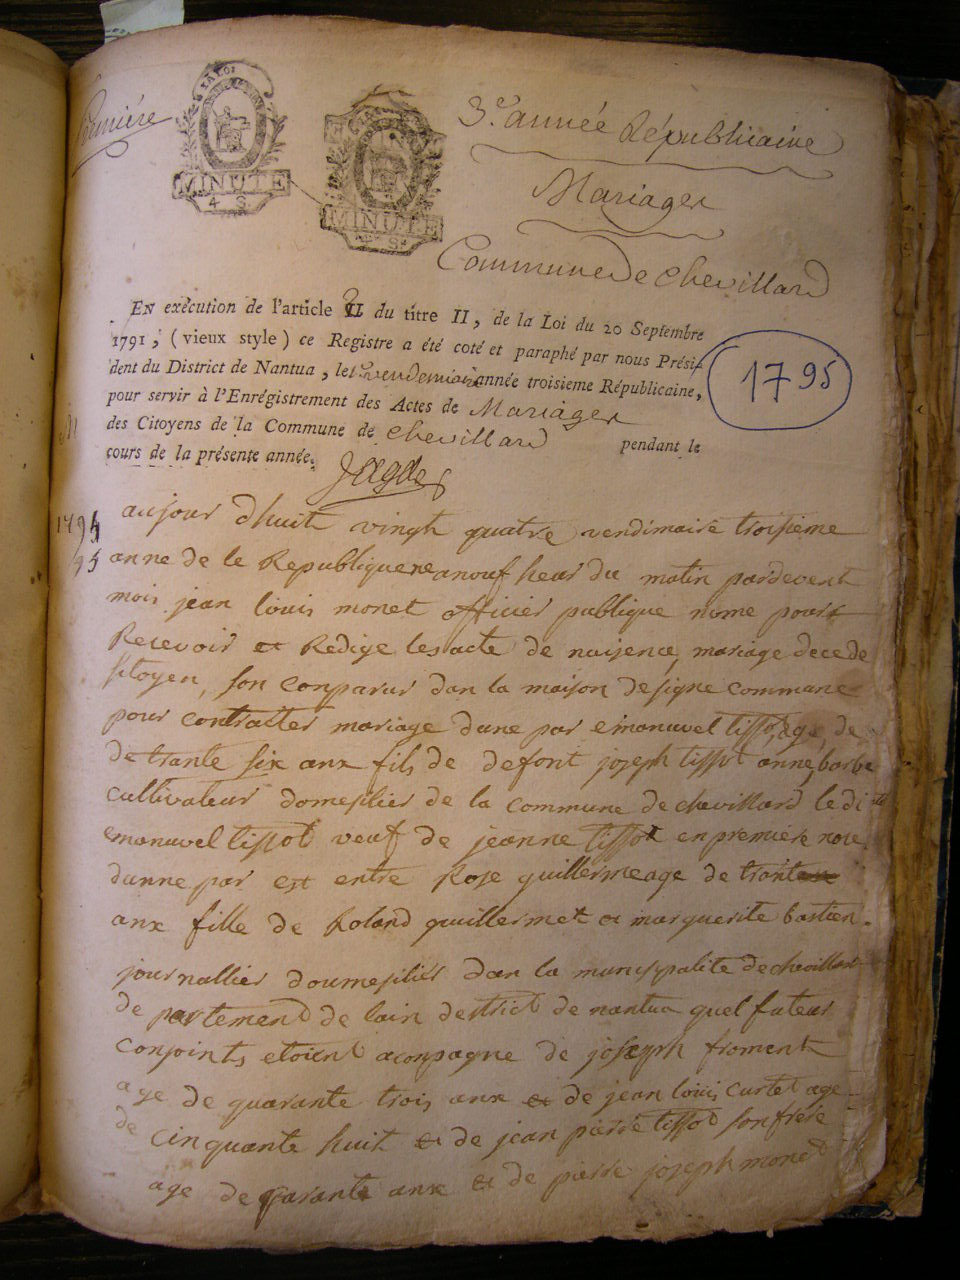 premiére
MINUTE
4 S.
MINUTE
3.e année Républicaine
Mariages
Commune De chevillard
EN exécution de l'article II du titre II, de la Loi du 20 Septembre
1791, (vieux style) ce Registre a été coté et paraphé par nous Prési-
dent du District de Nantua, le vendemiaire année troisieme Républicaine,
pour servir à l'Enrégistrement des Actes de Mariages
des Citoyens de la Commune de chevillard pendant le
cours de la présente année.
1795
1794
95
aujour dhuit vingt quatre vendimaire troisieme
anne de le Republique anouf heur du matin pardevent
moi jean louis monet officier publique nome pour
Recevoir et Redige les acte de naisence, mariage decede
sitoyen, son conparus dan la maison designe commune
pour contracter mariage dune par emanuvel tissot, age, de
de trante six anx fils de defont joseph tissot anne barbe
cultivateur domesilier de la commune de chevillard ledi
emanuvel tissot veuf de jeanne tissot en premiere nose
dunne par est entre Rose guillerme age de trante
anx fille de Roland guillermet et marguerite bastien.
journallier doumesilier dan la munisypalite de chevillart
de partement de lain destrict de nantua quel futeur
conjoints etoient aconpagne de joseph froment
age de quarante trois anx et de jean louis curtet age
de cinquante huit et de jean pierre tissot son frere
age de qarante anx et de pierre joseph monet